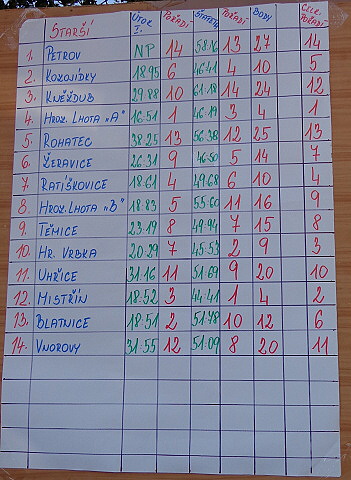 STARŠÍ ÚTOK I. POŘADÍ ŠTAFETA POŘADÍ BODY CELK. POŘADÍ
1. PETROV NP 14 58.16 13 27 14
2. KOZOJÍDKY 18.95 6 46.41 4 10 5
3. KNĚŽDUB 29.88 10 61.18 14 24 12
4. HROZ. LHOTA "A" 16.51 1 46.19 3 4 1
5. ROHATEC 38.25 13 56.38 12 25 13
6. ŽERAVICE 26.31 9 46.50 5 14 7
7. RATÍŠKOVICE 18.61 4 49.68 6 10 4
8. HROZ. LHOTA "B" 18.83 5 55.60 11 16 9
9. TĚMICE 23.19 8 49.94 7 15 8
10. HR. VRBKA 20.29 7 45.53 2 9 3
11. UHŘICE 31.16 11 51.69 9 20 10
12. MISTŘÍN 18.52 3 44.41 1 4 2
13. BLATNICE 18.51 2 51.78 10 12 6
14. VNOROVY 31.55 12 51.09 8 20 11